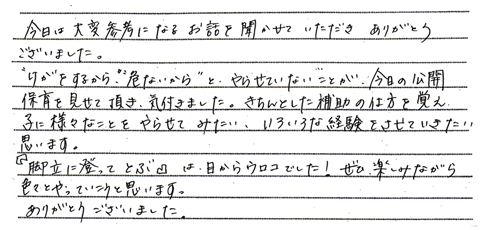 今日は大変参考になるお話を聞かせていただき ありがとう
ございました。
"けがをするから""危ないから"と、やらせていない"ことが、今日の公開
保育を見せて頂き、気付きました。きちんとした補助の仕方を覚え、
子に様々なことをやらせてみたい、いろいろな経験をさせていきたい
思います。
『脚立に登ってとぶ』は、目からウロコでした!ぜひ、楽しみながら
色々とやっていこうと思います。
ありがとうございました。